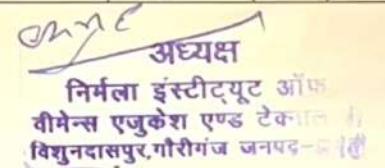 अध्यक्ष
निर्मला इंस्टीट्यूट ऑफ
वीमेन्स एजुकेश एण्ड टेक्नाल
विशुनदासपुर,गौरीगंज जनपद-